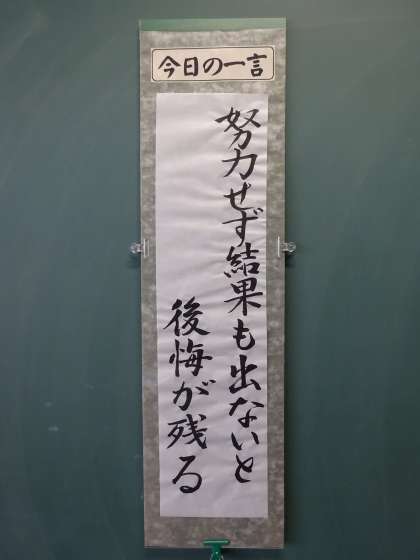 今日の一言
努力せず結果も出ないと
後悔が残る